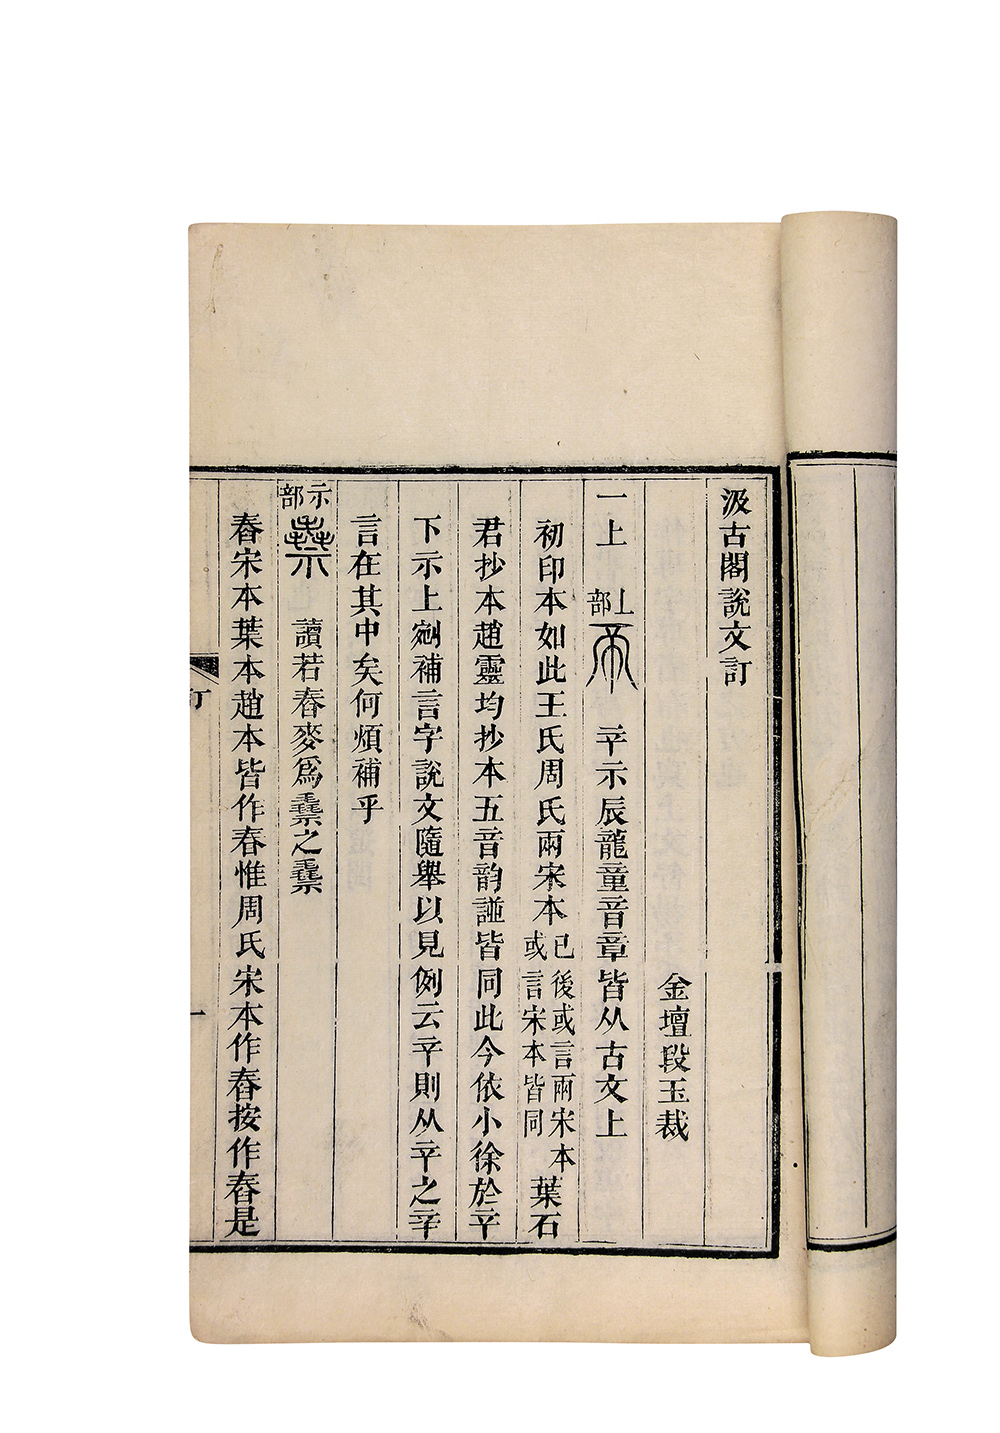 汲古閣說文訂
金壇段玉裁
一上 丄部 帝 䇂示辰龍童音章皆从古文上
初印本如此王氏周氏兩宋本已後或言兩宋本或言宋本皆同葉石
君抄本趙靈均抄本五音韵譜皆同此今依小徐於䇂
下示上剜補言字說文隨舉以見例云䇂則从䇂之䇂
言在其中矣何煩補乎
示部 㯔 讀若舂麥爲㯔之㯔
舂宋本葉本趙本皆作春惟周氏宋本作舂按作舂是
訂
一